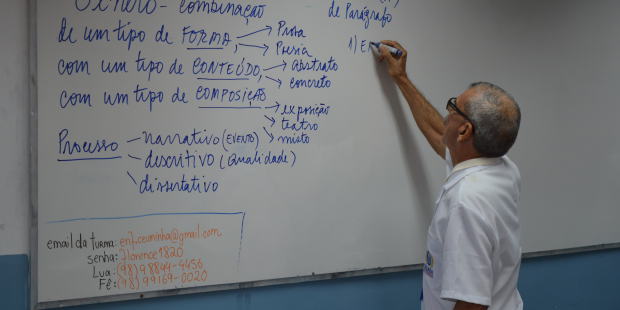 Gênero - combinação
de um tipo de FORMA, → Prosa
→ Poesia
com um tipo de CONTEÚDO, → abstrato
→ concreto
com um tipo de COMPOSIÇÃO → exposição
→ teatro
→ misto
Processo - narrativo (EVENTO)
- descritivo (qualidade)
\ dissertativo
email da turma: enf.ceuninha@gmail.com
senha: florence1820
Lua: (98) 98844-4456
Fê: (98) 99169-0020
de Parágrafo
1) En